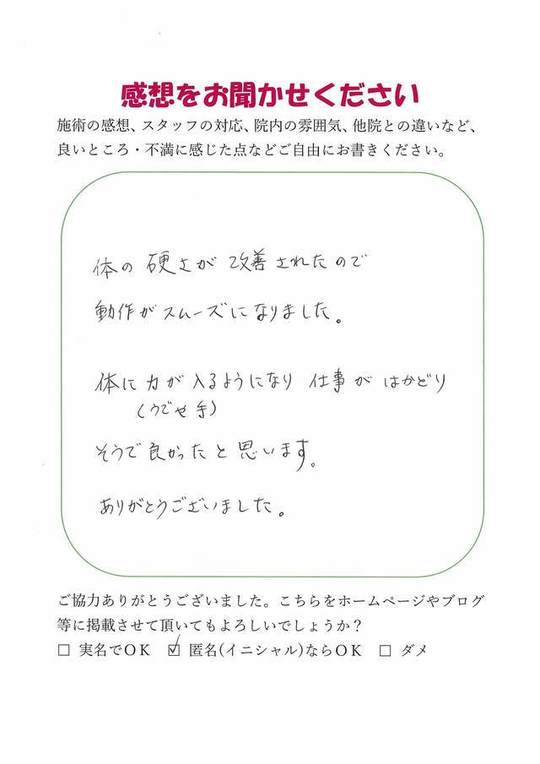 感想をお聞かせください
施術の感想、スタッフの対応、院内の雰囲気、他院との違いなど、
良いところ・不満に感じた点などご自由にお書きください。
体の 硬さが 改善されたので
動作がスムーズになりました。
体に力が入るようになり 仕事が はかどり
(うでや手)
そうで良かったと思います。
ありがとうございました。
ご協力ありがとうございました。こちらをホームページやブログ
等に掲載させて頂いてもよろしいでしょうか？
□ 実名でOK ☑ 匿名(イニシャル)ならOK □ ダメ